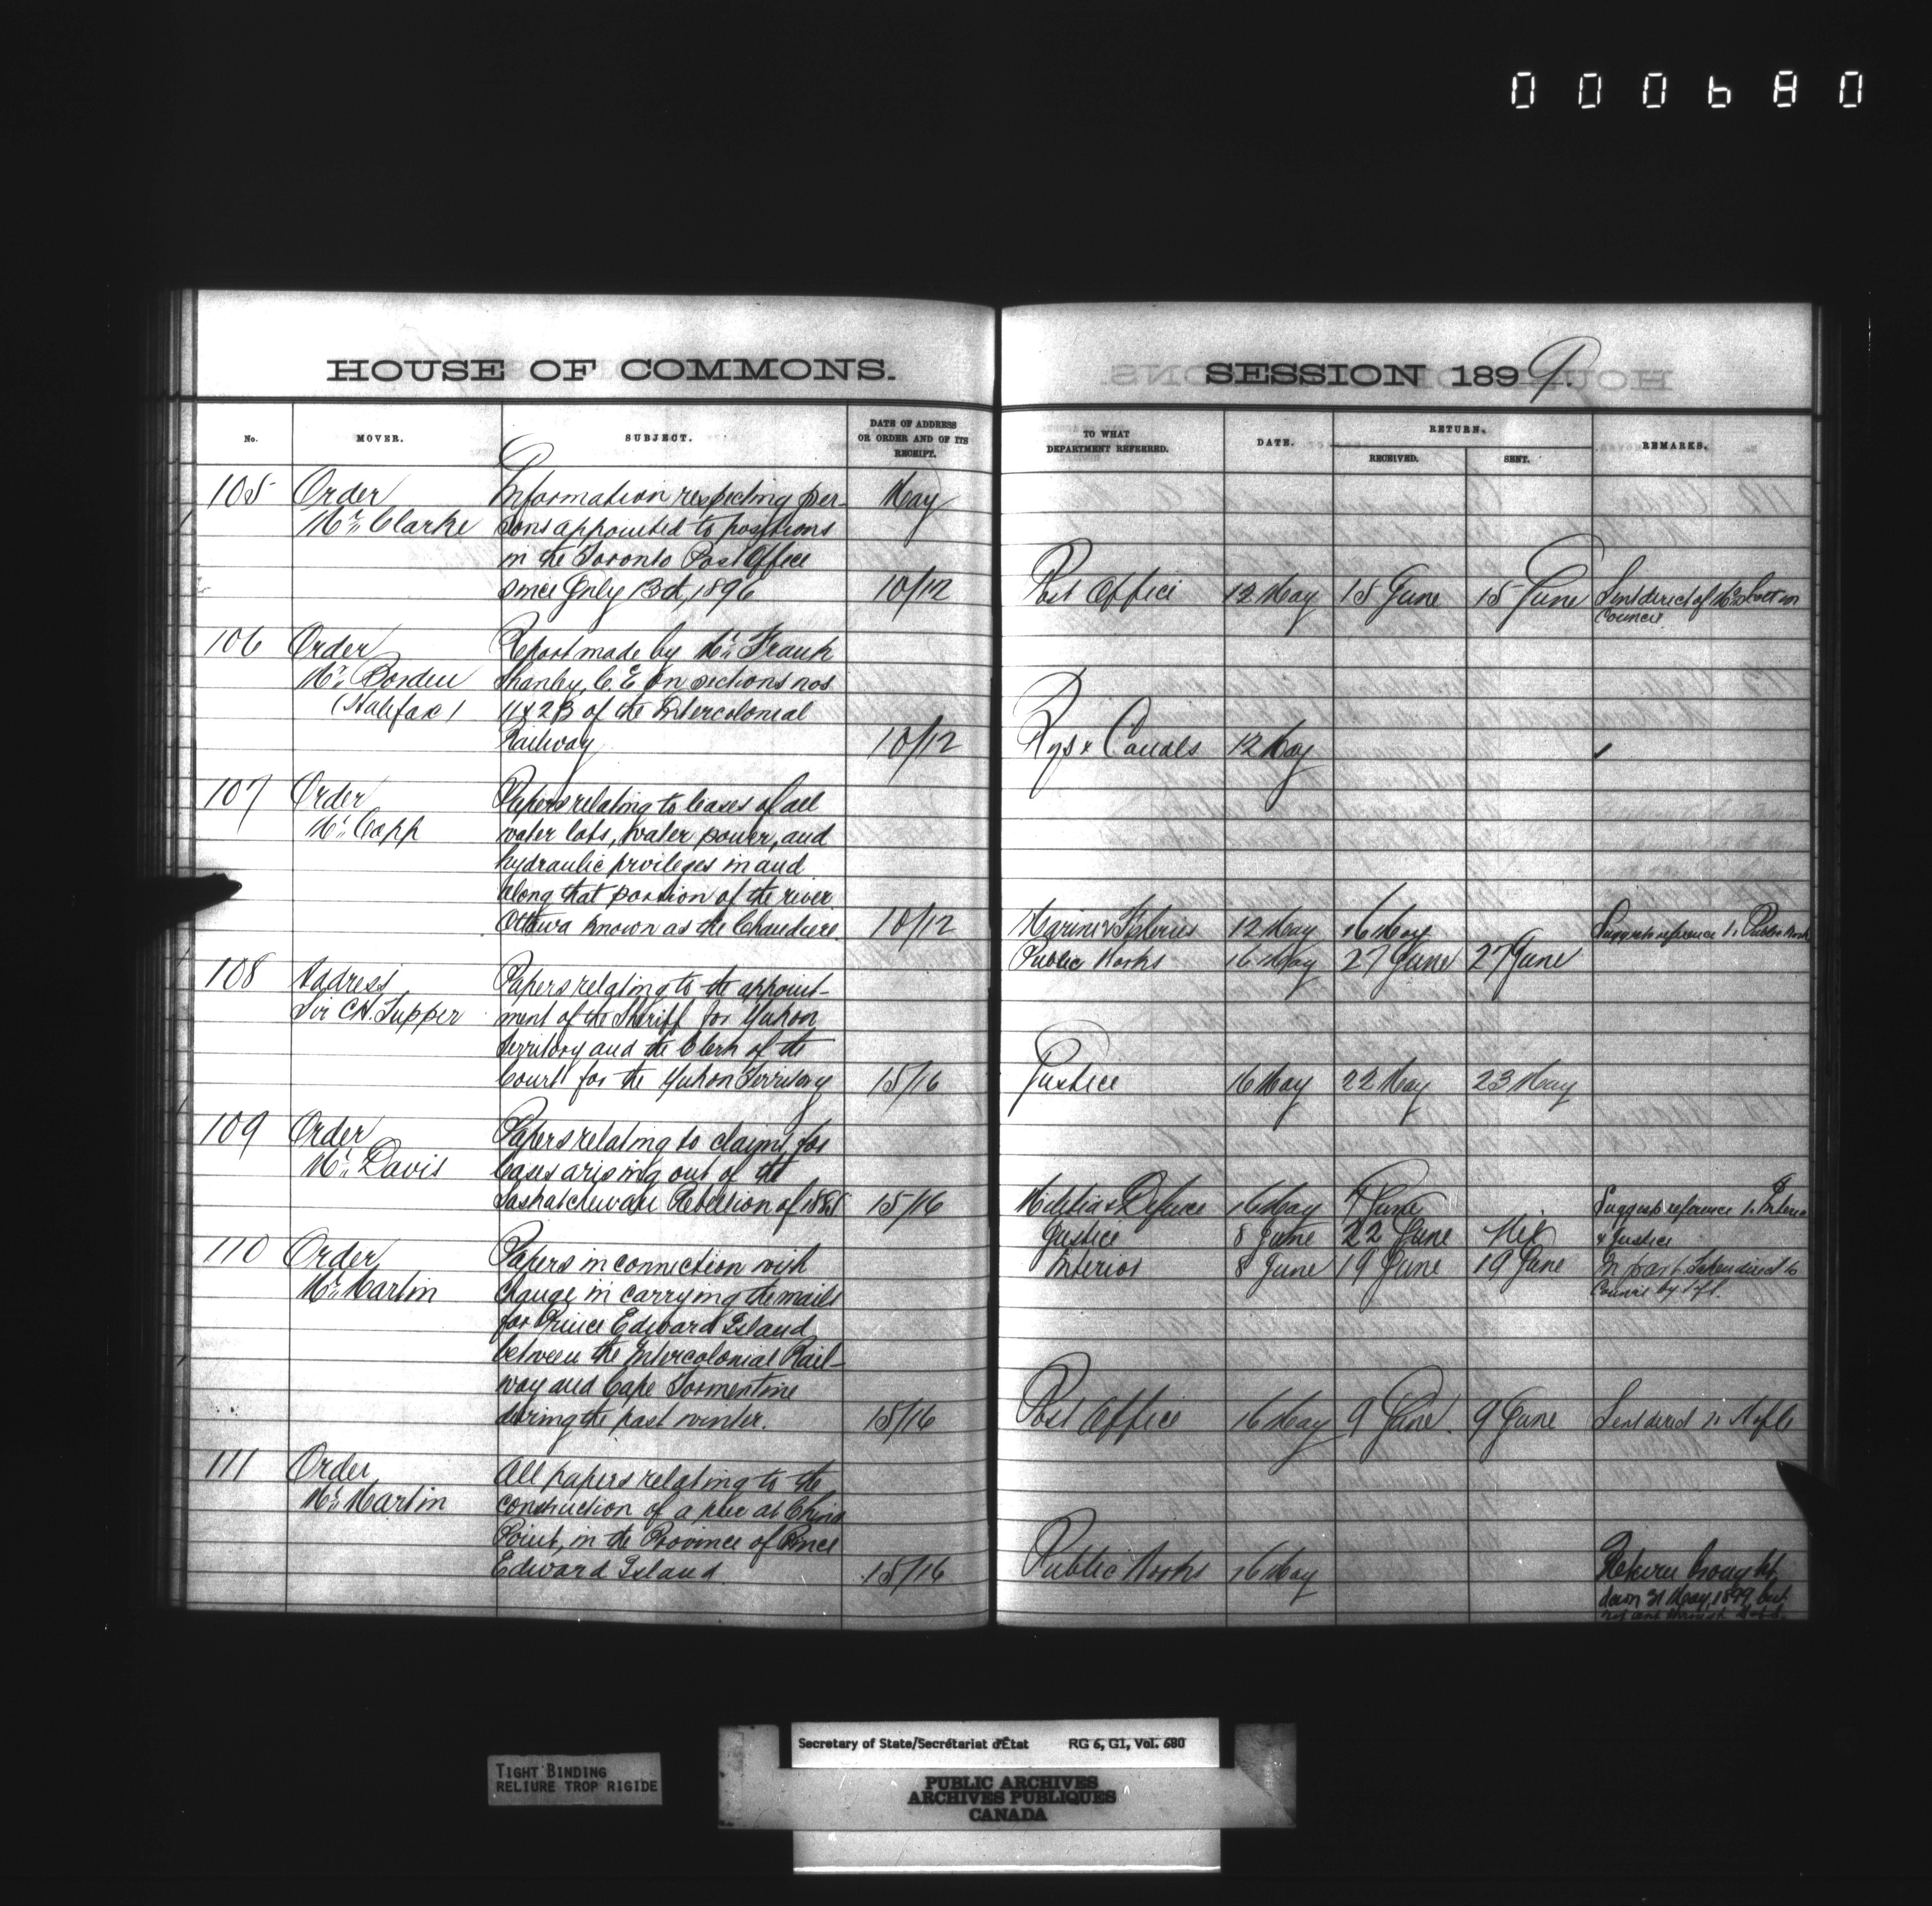 000680
HOUSE OF COMMONS.
No.
MOVER.
SUBJECT.
DATE OF ADDRESS
OR ORDER AND OF ITS
RECEIPT.
105
Order
Mr. Clarke
Information respecting per-
sons appointed to positions
in the Toronto Post Office
since July 13th, 1896
May
10/12
106
Order
Mr. Borden
(Halifax)
Report made by Mr. Frank
Shanly, C.E. on sections nos
of the Intercolonial
Railway
10/12
107
Order
Mr. Copp
Papers relating to leases of all
water lots, water power, and
hydraulic privileges in and
along that portion of the river
Ottawa known as the Chaudiere.
10/12
108
Address
Sir C.H. Tupper
Papers relating to the appoint-
ment of the Sheriff for Yukon
Territory and the Clerk of the
Court for the Yukon Territory
15/16
109
Order
Mr. Davis
Papers relating to claims for
losses arising out of the
Saskatchewan Rebellion of 1885
15/16
110
Order
Mr. Martin
Papers in connection with
change in carrying the mails
for Prince Edward Island
between the Intercolonial Rail-
way and Cape Tormentine
during the past winter.
15/16
111
Order
Mr. Martin
All papers relating to the
construction of a pier at China
Point, in the Province of Prince
Edward Island
15/16
SESSION 1899.
TO WHAT
DEPARTMENT REFERRED.
DATE.
RETURN.
RECEIVED.
SENT.
REMARKS.
Post Office 12 May 15 June 15 June Sent direct
Council.
Rys & Canals 12 May
Marine & Fisheries 12 May 16 May Suggests reference to Public Works
Public Works 16 May 27 June 27 June
Justice 16 May 22 May 23 May
Militia & Defence 16 May June Suggests reference to Interior
Justice 8 June 22 June Nil & Justice
Interior 8 June 19 June 19 June In part. Taken direct to
Council by
Post Office 16 May 9 June 9 June Sent direct
Public Works 16 May Return brought
down 31 May, 1899, but
not sent through
TIGHT BINDING
RELIURE TROP RIGIDE
Secretary of State/Secrétariat d'État RG 6, G1, Vol. 680
PUBLIC ARCHIVES
ARCHIVES PUBLIQUES
CANADA